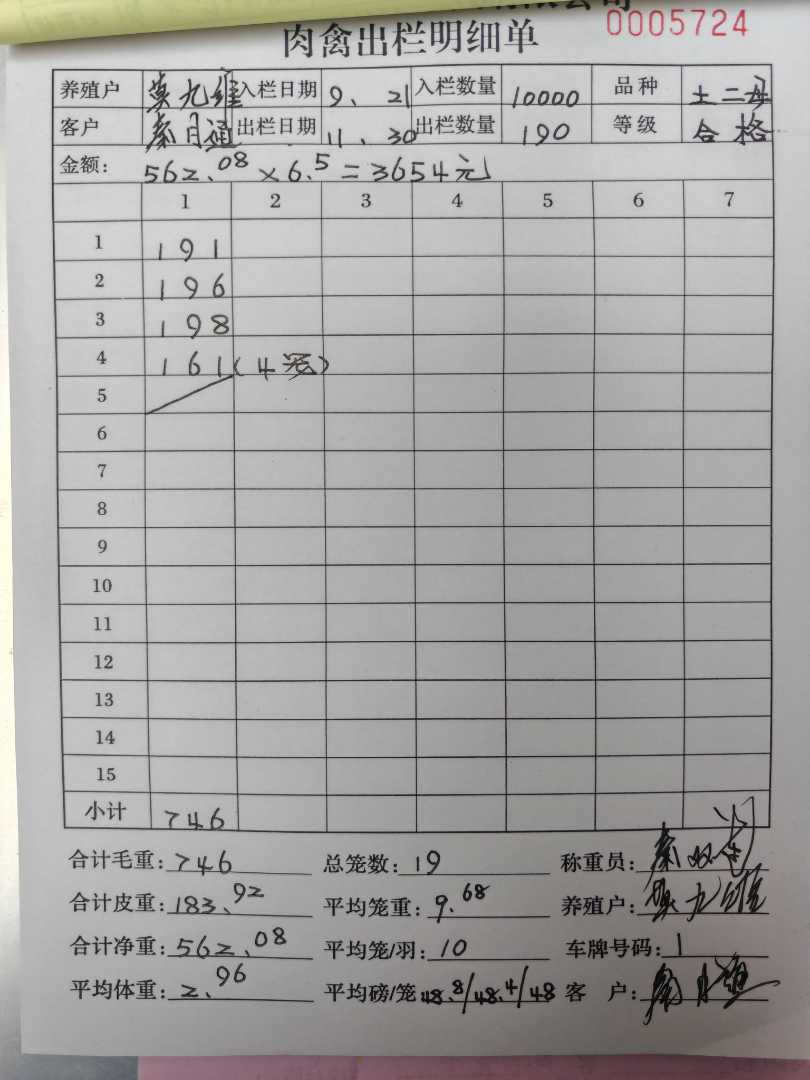 0005724
肉禽出栏明细单
养殖户 莫九维 入栏日期 9、21 入栏数量 10000 品种 土二号
客户 秦月通 出栏日期 11、30 出栏数量 190 等级 合格
金额: 562.08×6.5=3654元
1 2 3 4 5 6 7
1 191
2 196
3 198
4 161(4笼)
5
6
7
8
9
10
11
12
13
14
15
小计 746
合计毛重: 746 总笼数: 19 称重员:
合计皮重: 183.92 平均笼重: 9.68 养殖户: 莫九维
合计净重: 562.08 平均笼/羽: 10 车牌号码: 1
平均体重: 2.96 平均磅/笼: 48.8/48.4/48 客 户: 秦月通